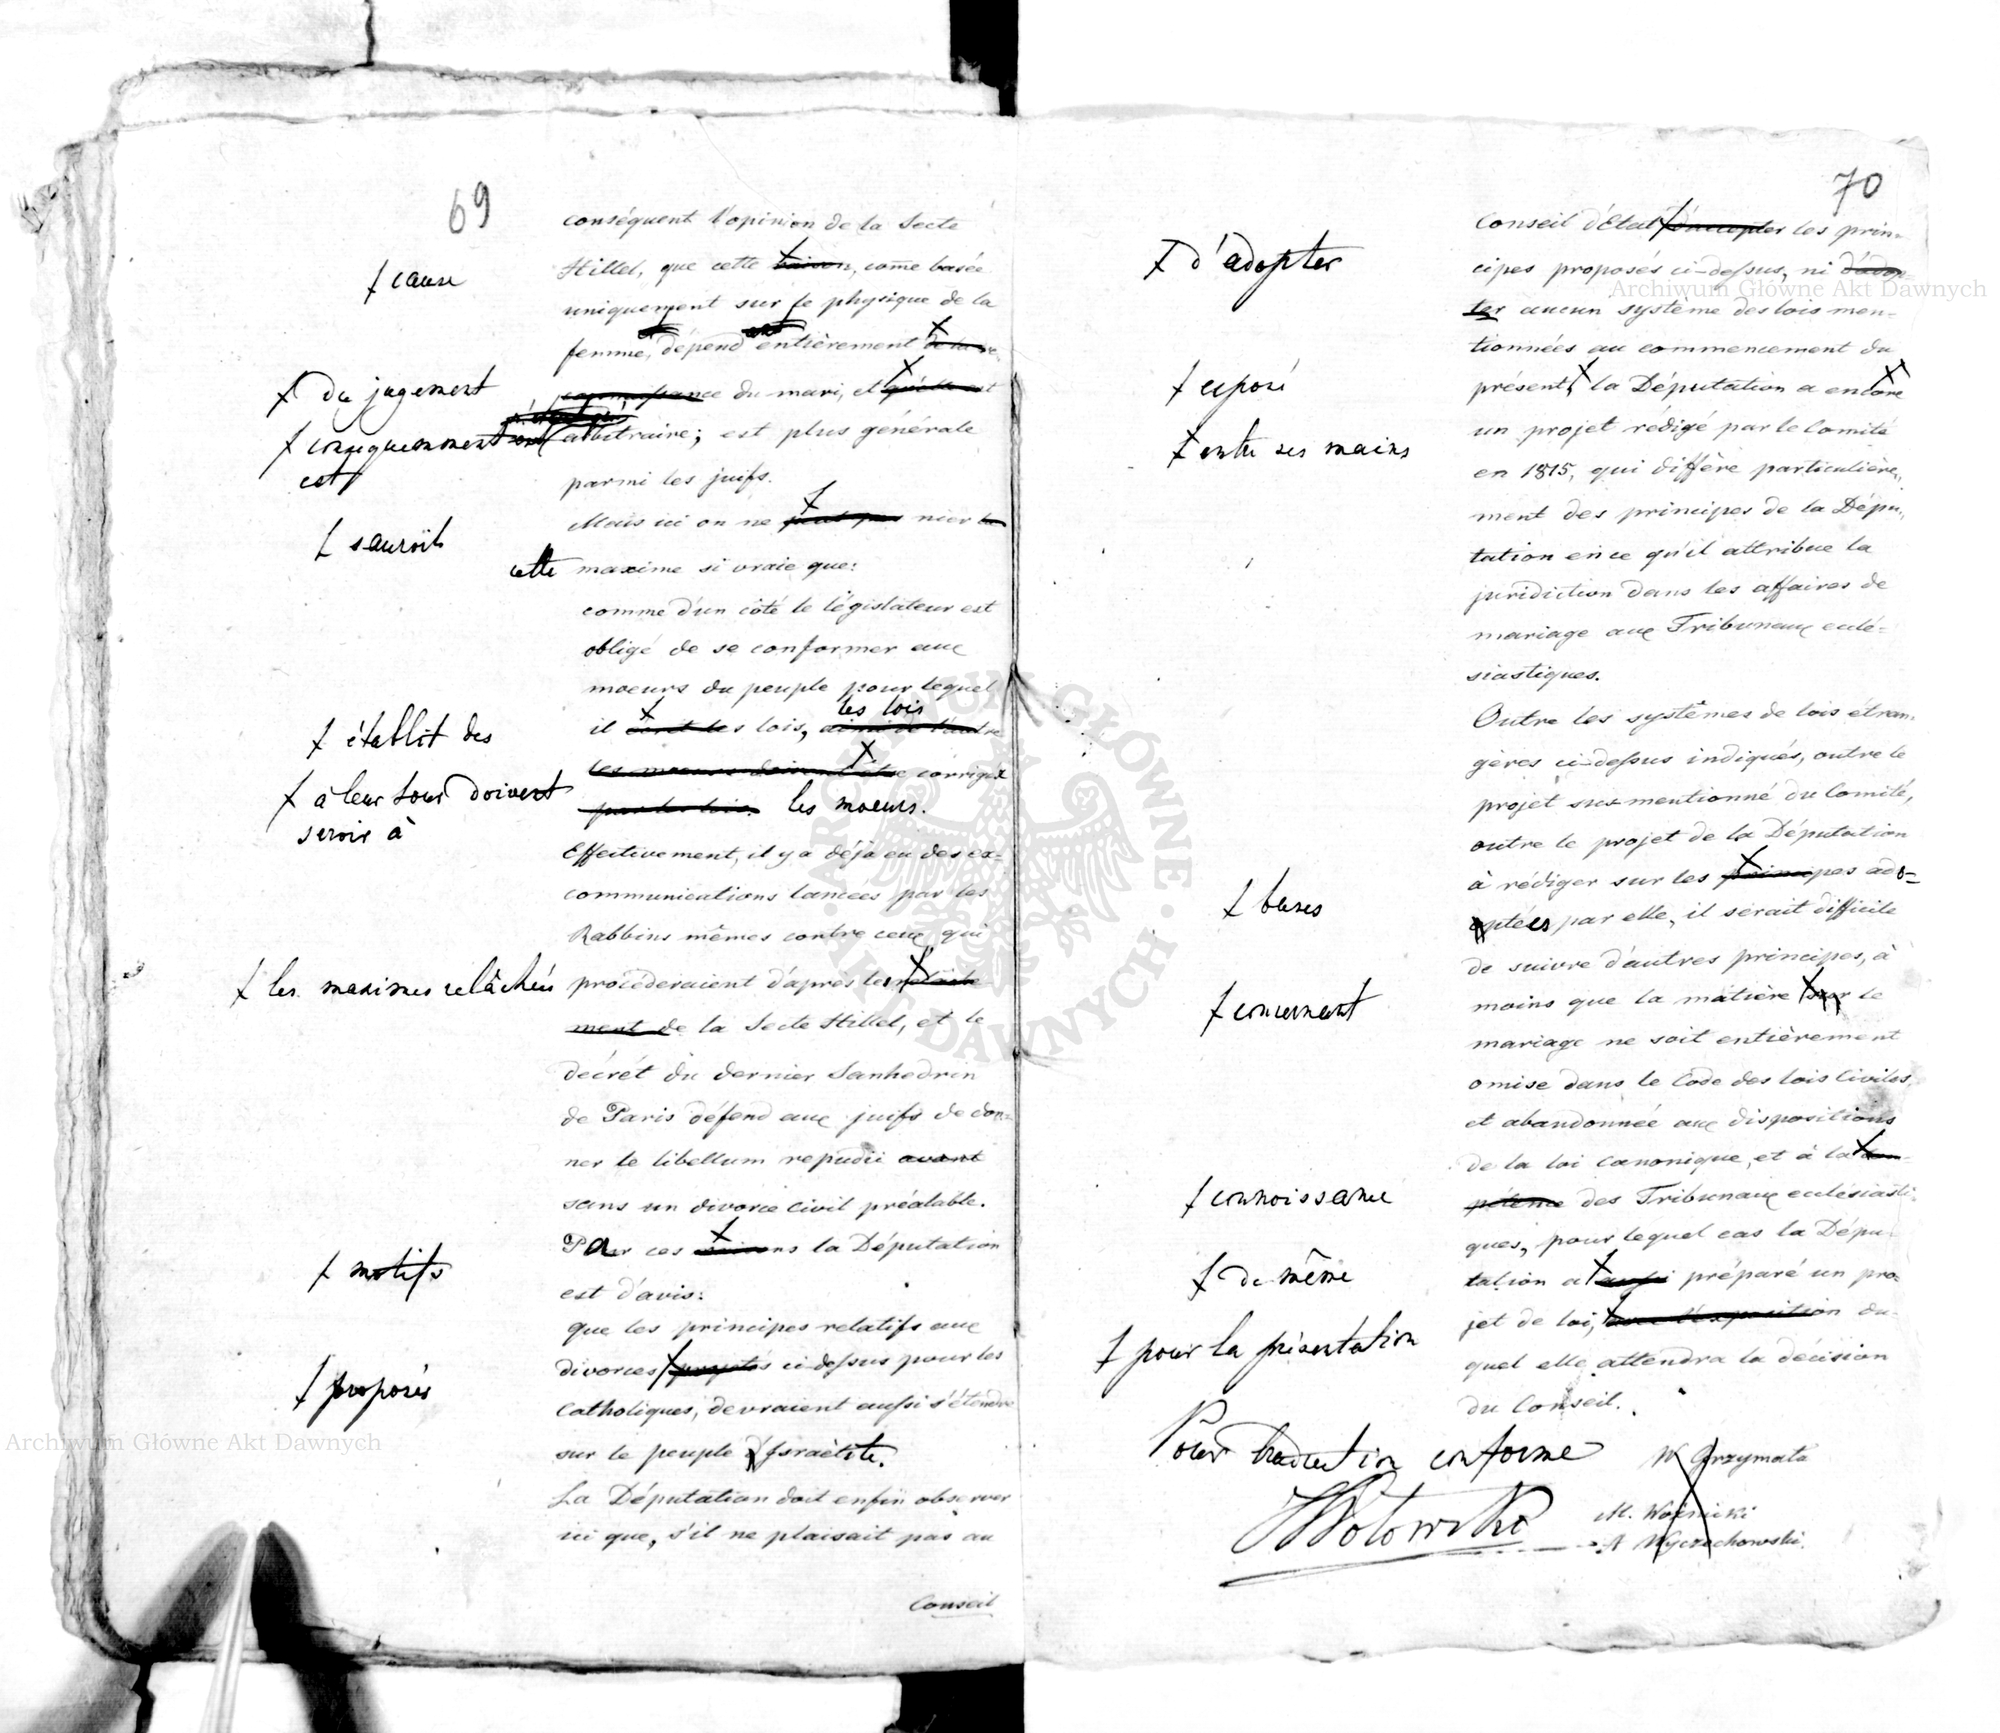 69
conséquent l'opinion de la Secte
† cause
Hillel, que cette raison, come basée
uniquement sur le physique de la
femme, dépend entièrement de la re
† du jugement
connaissance du mari, et qu'elle est
† consequemment
est
arbitraire; est plus générale
parmi les juifs.
† sauroit
Mais ici on ne peut pas nier la
cette maxime si vraie que:
comme d'un côté le législateur est
obligé de se conformer aux
moeurs du peuple pour lequel
les lois
† établit des
il écrit les lois, ainsi de l'autre
† à leur tour doivent
servir à
les moeurs doivent être corrigés
par les lois. les moeurs.
Effectivement, il y a déjà eu des ex-
communications lancées par les
Rabbins mêmes contre ceux qui
† les maximes relâchées
procéderaient d'après le relâche
ment de la Secte Hillel, et le
décrét du dernier Sanhedrin
de Paris défend aux juifs de don-
ner le libellum repudii avant
sans un divorce civil préalable.
† motifs
Par ces raisons la Députation
est d'avis:
que les principes relatifs aux
† proposés
divorces projetés ci-dessus pour les
Catholiques, devraient aussi s'étendre
sur le peuple d'Israëlite.
La Députation doit enfin observer
ici que, s'il ne plaisait pas au
Conseil
70
† d'adopter
Conseil d'Etat d'accepter les prin-
cipes proposés ci-dessus, ni d'adop
ter aucun système des lois men-
tionnées au commencement du
† exposé
présent, la Députation a encore
† entre ses mains
un projet rédigé par le Comité
en 1815, qui diffère particulière-
ment des principes de la Dépu-
tation en ce qu'il attribue la
juridiction dans les affaires de
mariage aux Tribunaux eclé-
siastiques.
Outre les systêmes de lois étran-
gères ci-dessus indiqués, outre le
projet sus mentionné du Comité,
outre le projet de la Députation
† bases
à rédiger sur les principes ado-
ptées par elle, il serait difficile
de suivre d'autres principes, à
† concernant
moins que la matière sur le
mariage ne soit entièrement
omise dans le Code des lois Civiles,
et abandonnée aux dispositions
de la loi canonique, et à la com-
† connoissance
pétence des Tribunaux eclésiasti-
ques, pour lequel cas la Dépu-
† de même
tation a aussi préparé un pro-
† pour la présentation
jet de loi, avec l'exposition du-
quel elle attendra la décision
du Conseil.
Pour traduction conforme
W Grzymała
Wołowski
M. Woźnicki
A Wyczechowski.